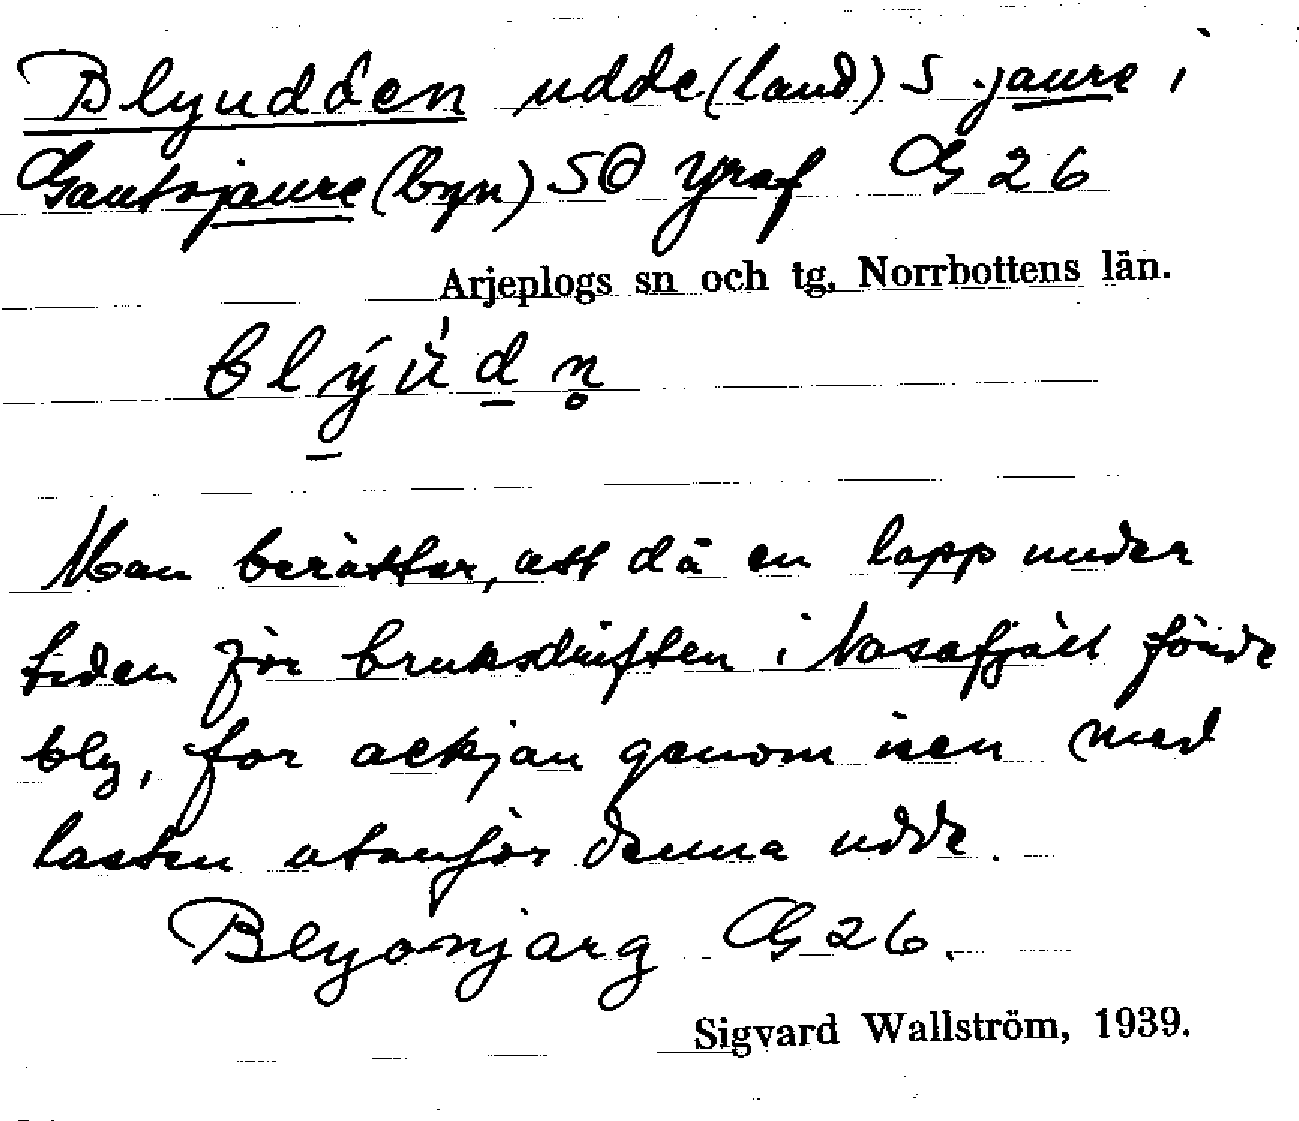 Blyudden udde (land) S jaure i
Gautojaure (byn) SO Graf G 26
Arjeplogs sn och tg. Norrbottens län.
blýùdn̥
Man berättar, att då en lapp under
tiden för bruksdriften i Nasafjäll förde
bly, for ackjan genom isen med
lasten utanför denna udde.
Blyonjarg G 26.
Sigvard Wallström, 1939.